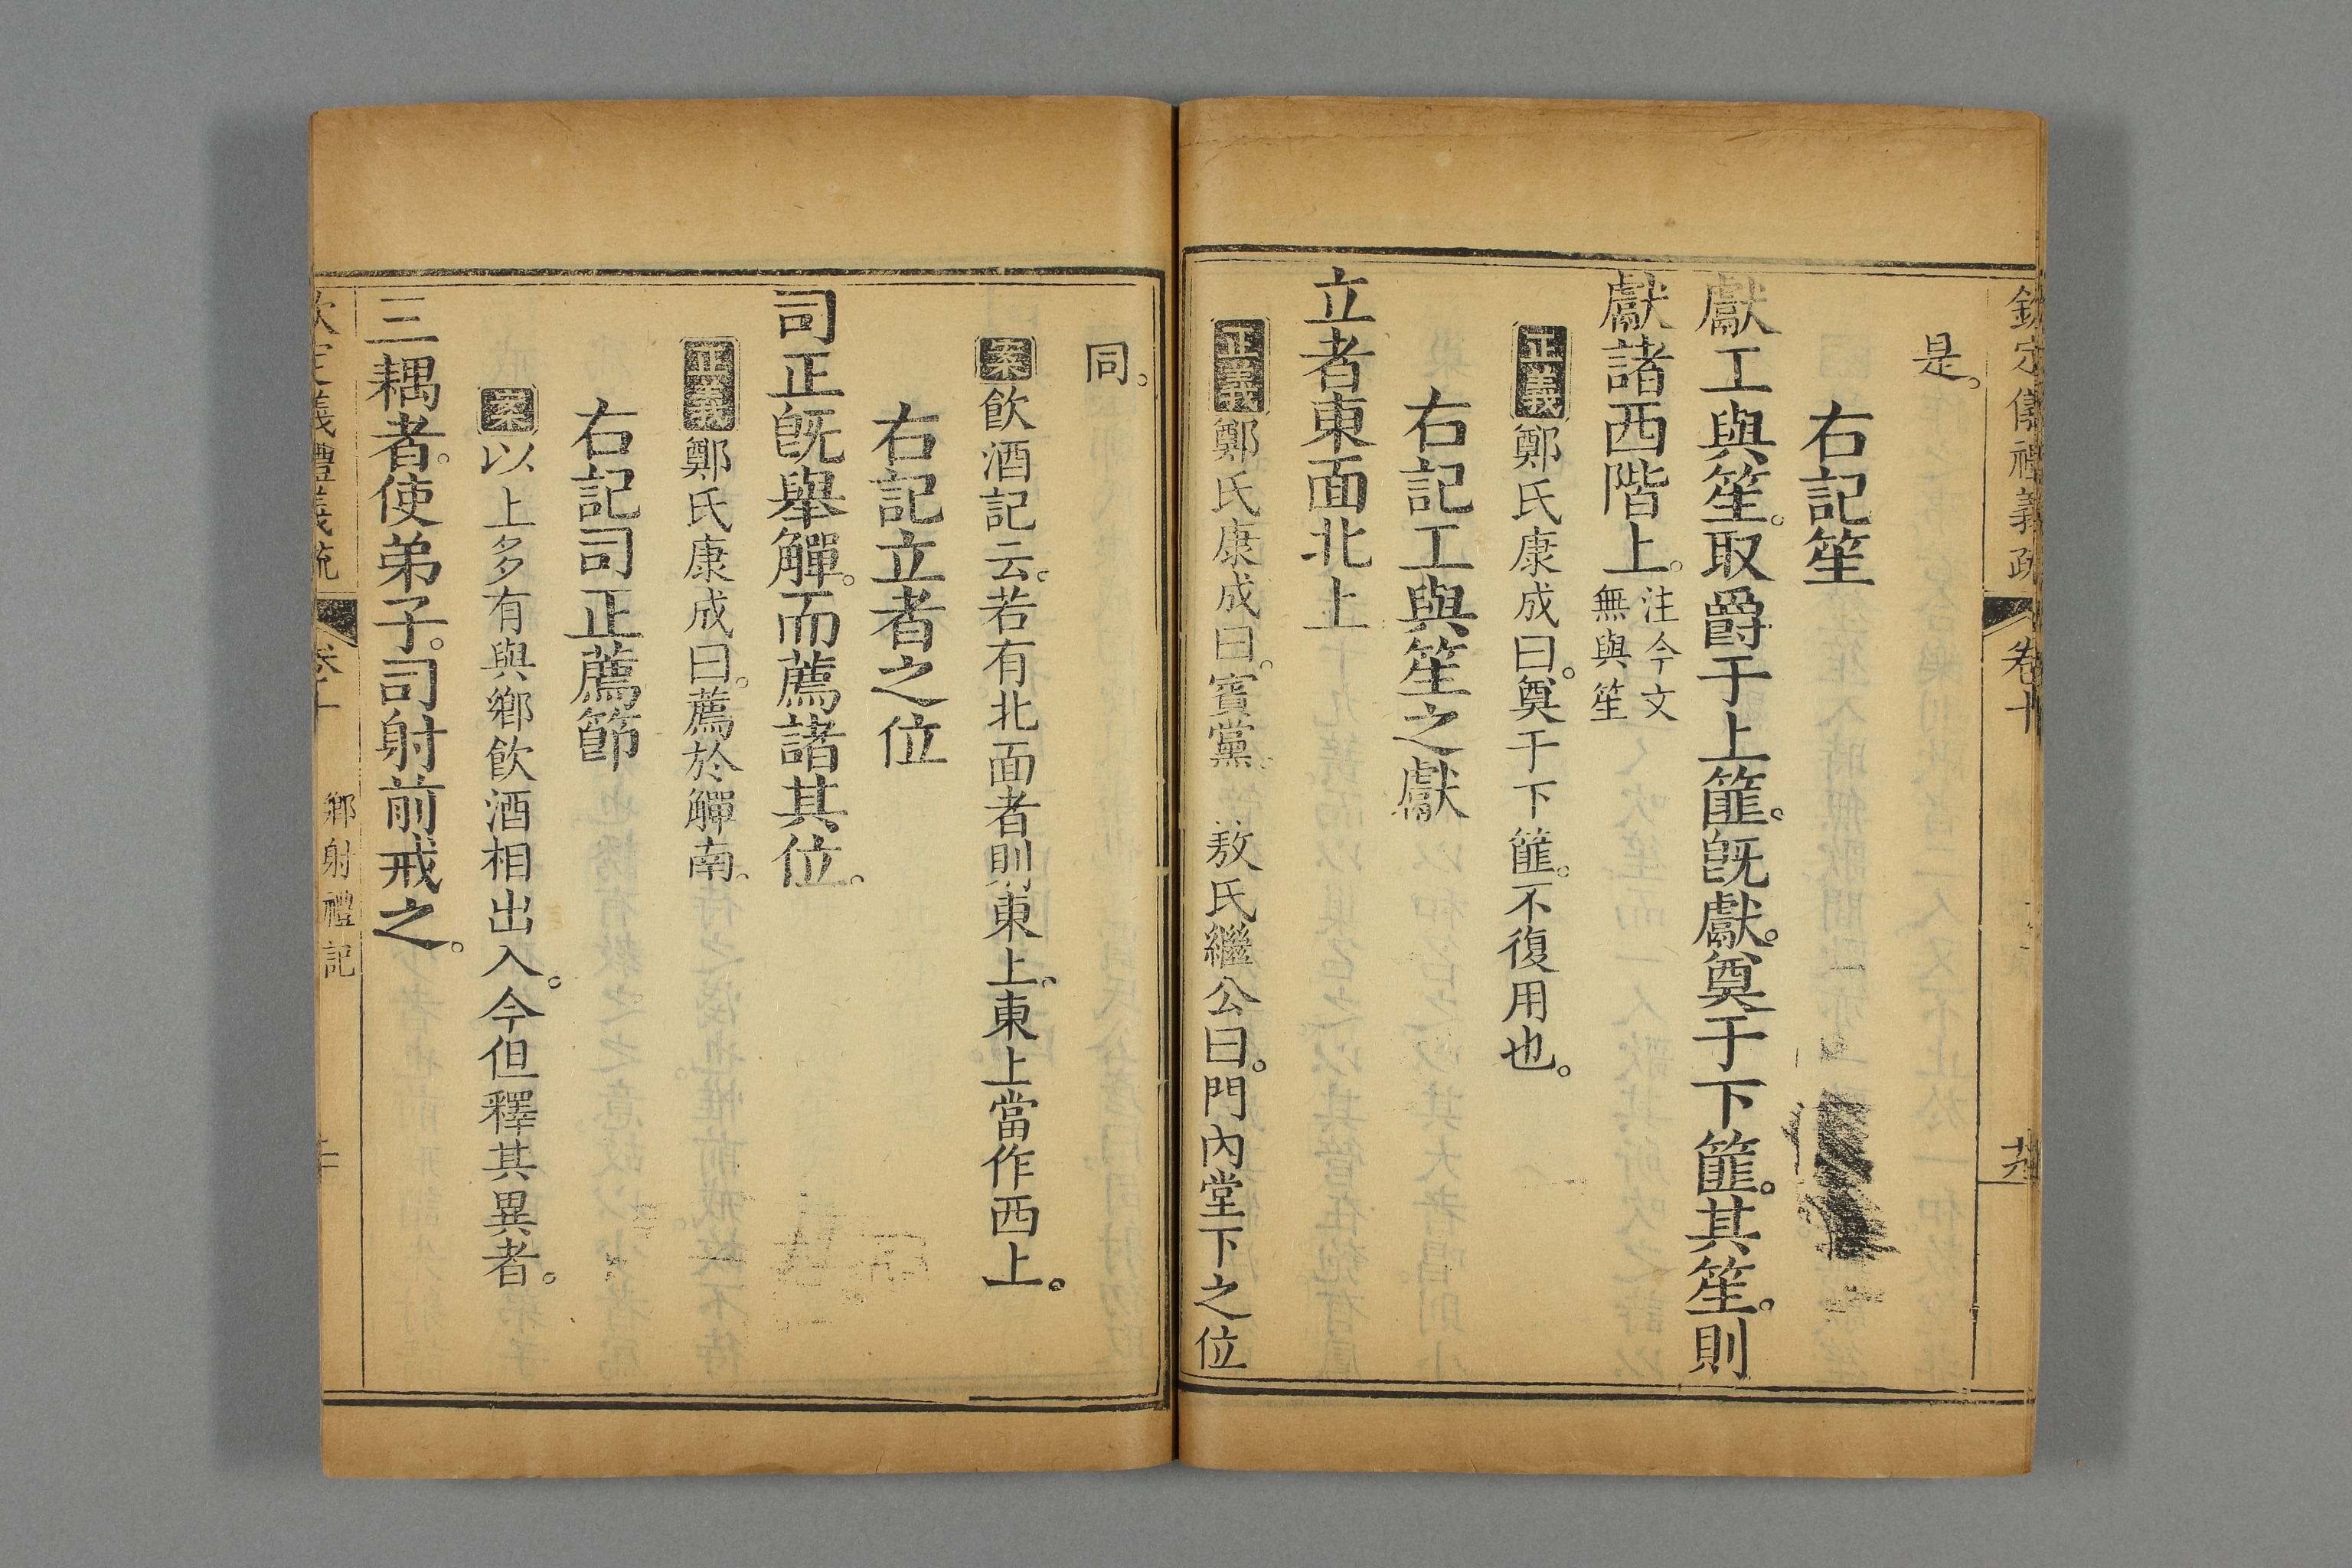 欽定儀禮義疏 卷十
是。
右記笙
獻工與笙。取爵于上篚。旣獻。奠于下篚。其笙。則
獻諸西階上。注今文無與笙
正義鄭氏康成曰。奠于下篚。不復用也。
右記工與笙之獻
立者東面北上
正義鄭氏康成曰。賓黨。 敖氏繼公曰。門內堂下之位
同。
案飲酒記云。若有北面者則東上。東上當作西上。
右記立者之位
司正旣舉觶。而薦諸其位。
正義鄭氏康成曰。薦於觶南。
右記司正薦節
案以上多有與鄉飲酒相出入。今但釋其異者。
三耦者。使弟子。司射前戒之。
欽定儀禮義疏 卷十 鄉射禮記